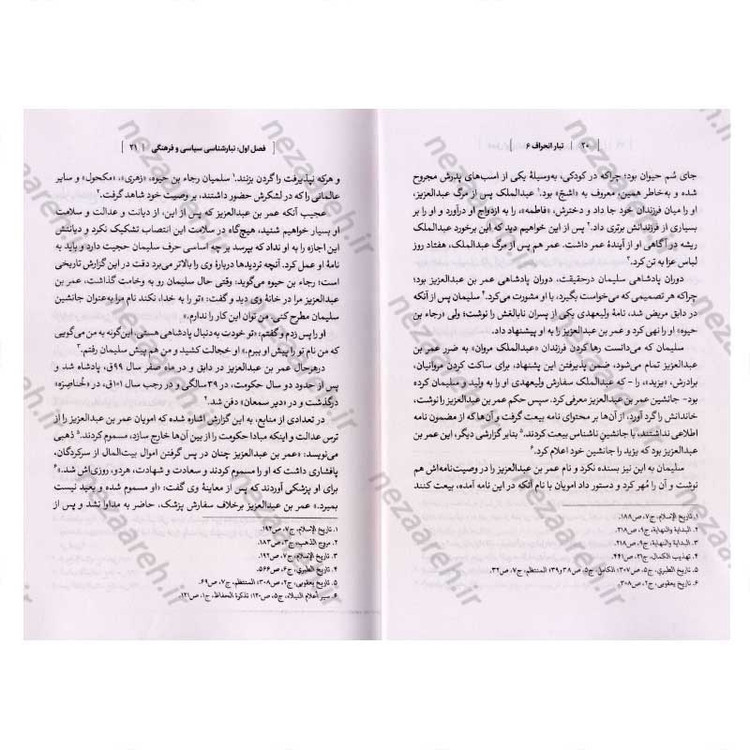 [ ۲۰ | تبار انحراف ۶ ]
جای سُم حیوان بود؛ چراکه در کودکی، به‌وسیلهٔ یکی از اسب‌های پدرش مجروح
شده و به‌خاطر همین، معروف به «اشجّ» بود.۱ عبدالملک پس از مرگ عبدالعزیز،
او را میان فرزندان خود جا داد و دخترش، «فاطمه»، را به ازدواج او درآورد و او را بر
بسیاری از فرزندانش برتری داد.۲ پس از این خواهیم دید که این برخورد عبدالملک
ریشه در آگاهی او از آیندهٔ عمر داشت. عمر هم پس از مرگ عبدالملک، هفتاد روز
لباس عزا به تن کرد.۳
دوران پادشاهی سلیمان درحقیقت، دوران پادشاهی عمر بن عبدالعزیز بود؛
چراکه هر تصمیمی که می‌خواست بگیرد، با او مشورت می‌کرد.۴ سلیمان پس از آنکه
در دابق مریض شد، نامهٔ ولیعهدی یکی از پسران نابالغش را نوشت؛ ولی «رجاء بن
حیوه» او را نهی کرد و عمر بن عبدالعزیز را به او پیشنهاد داد.
سلیمان که می‌دانست رها کردن فرزندان «عبدالملک مروان» به ضرر عمر بن
عبدالعزیز تمام می‌شود، ضمن پذیرفتن این پیشنهاد، برای ساکت کردن مروانیان،
برادرش، «یزید»، را - که عبدالملک سفارش ولیعهدی او را به ولید و سلیمان کرده
بود - جانشین عمر بن عبدالعزیز معرفی کرد. سپس حکم عمر بن عبدالعزیز را نوشت،
خاندانش را گرد آورد، از آن‌ها بر محتوای نامه بیعت گرفت و آن‌ها که از مضمون نامه
اطلاعی نداشتند، با جانشینِ ناشناس بیعت کردند.۵ بنابر گزارشی دیگر، این عمر بن
عبدالعزیز بود که یزید را جانشین خود اعلام کرد.۶
سلیمان به این نیز بسنده نکرد و نام عمر بن عبدالعزیز را در وصیت‌نامه‌اش هم
نوشت و آن را مُهر کرد و دستور داد امویان با نام آنکه در این نامه آمده، بیعت کنند
۱. تاریخ الإسلام، ج۷، ص۱۸۸.
۲. البدایة والنهایة، ج۹، ص۲۱۸.
۳. البدایة والنهایة، ج۹، ص۲۱۸.
۴. تهذیب الکمال، ج۲۱، ص۴۴۱.
۵. تاریخ الطبري، ج۵، ص۳۰۷؛ الکامل، ج۵، ص۳۸و۳۹؛ المنتظم، ج۷، ص۳۲.
۶. تاریخ یعقوبی، ج۲، ص۳۰۸.
[ فصل اول: تبارشناسی سیاسی و فرهنگی | ۲۱ ]
و هرکه نپذیرفت را گردن بزنند.۱ سلمیان رجاء بن حیوه، «زهری»، «مکحول» و سایر
عالمانی را که در لشکرش حضور داشتند، بر وصیت خود شاهد گرفت.۲
عجیب آنکه عمر بن عبدالعزیز که پس از این، از دیانت و عدالت و سلامت
او بسیار خواهیم شنید، هیچ‌گاه در سلامت این انتصاب تشکیک نکرد و دیانتش
این اجازه را به او نداد که بپرسد بر چه اساسی حرف سلیمان حجیت دارد و باید به
نامهٔ او عمل کرد. آنچه تردیدها دربارهٔ وی را بالاتر می‌برد دقت در این گزارش تاریخی
است؛ رجاء بن حیوه می‌گوید: وقتی حال سلیمان رو به وخامت گذاشت، عمر بن
عبدالعزیز مرا در خانهٔ وی دید و گفت: «تو را به خدا، نکند نام مرا به‌عنوان جانشین
سلیمان مطرح کنی. من توان این کار را ندارم.»
او را پس زدم و گفتم: «تو خودت به‌دنبال پادشاهی هستی. این‌گونه به من می‌گویی
که من نام تو را پیش او ببرم.» او خجالت کشید و من هم پیش سلیمان رفتم.۳
درهرحال عمر بن عبدالعزیز در دابق و در ماه صفر سال ۹۹ق، پادشاه شد و
پس از حدود دو سال حکومت، در ۳۹سالگی و در رجب سال ۱۰۱ق، در «خُناصِرَه»
درگذشت و در «دیر سمعان» دفن شد.۴
در تعدادی از منابع، به این گزارش اشاره شده که امویان عمر بن عبدالعزیز را از
ترس عدالت و اینکه مبادا حکومت را از بین آن‌ها خارج سازد، مسموم کردند.۵ ذهبی
می‌نویسد: «عمر بن عبدالعزیز چنان در پس گرفتن اموال بیت‌المال از سرکردگان،
پافشاری داشت که او را مسموم کردند و سعادت و شهادت، هردو، روزی‌اش شد.»۶
برای او پزشکی آوردند که پس از معاینهٔ وی گفت: «او مسموم شده و بعید نیست
بمیرد.» عمر بن عبدالعزیز برخلاف سفارش پزشک، حاضر به مداوا نشد و پس از
۱. تاریخ الإسلام، ج۷، ص۱۹۲.
۲. مروج الذهب، ج۳، ص۱۸۳.
۳. تاریخ الإسلام، ج۷، ص۱۹۲.
۴. تاریخ الطبري، ج۶، ص۵۶۶.
۵. تاریخ یعقوبی، ج۲، ص۳۰۸؛ المنتظم، ج۷، ص۶۹.
۶. سیر أعلام النبلاء، ج۵، ص۱۲۰؛ تذکرة الحفاظ، ج۱، ص۱۲۱.
nezaareh.ir